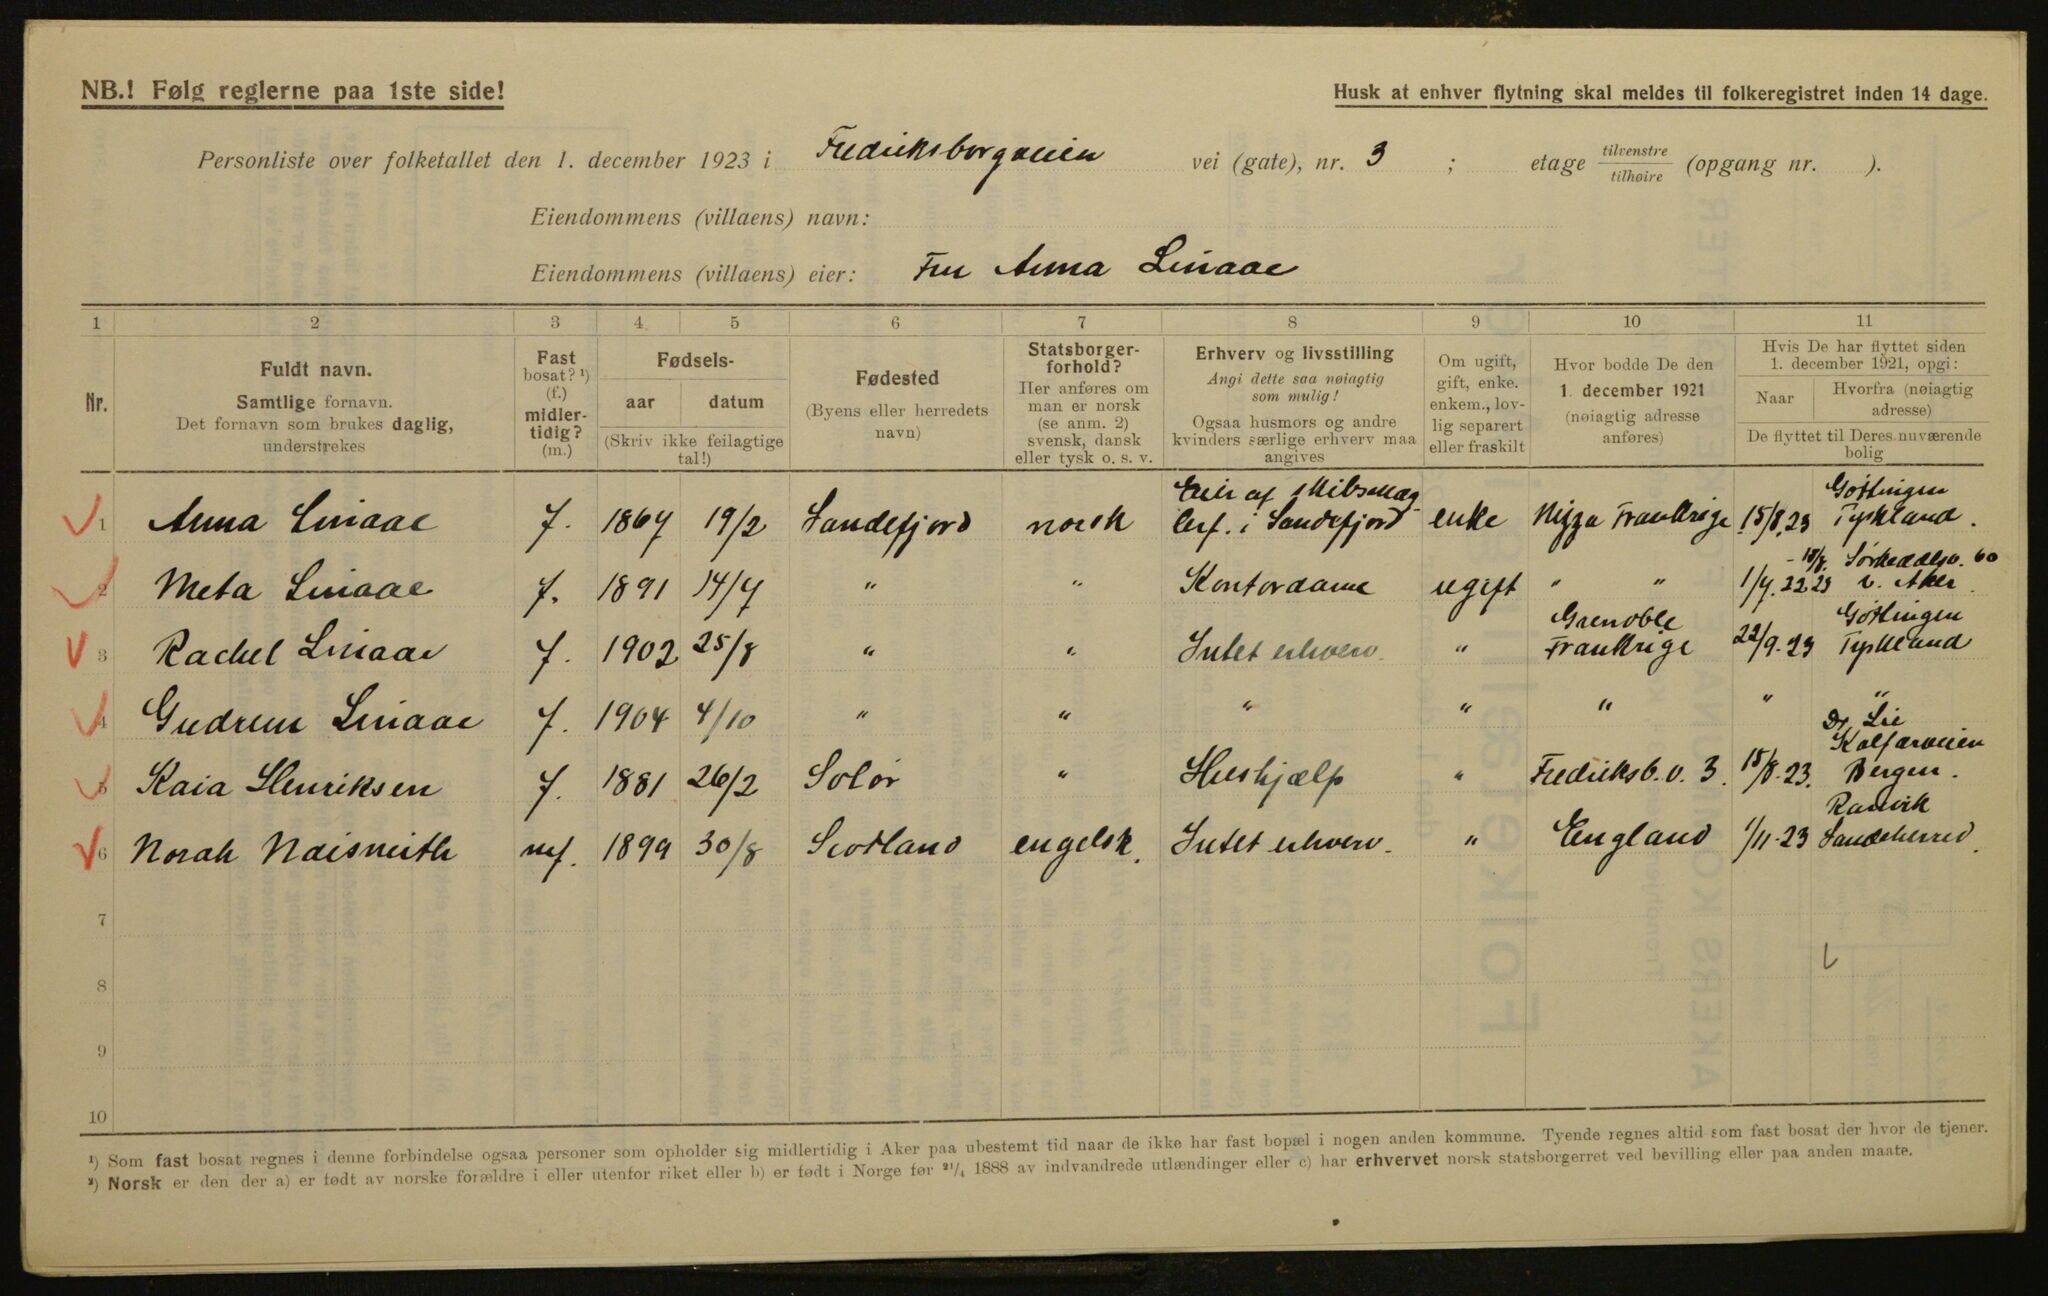 NB.! Følg reglerne paa 1ste side!
Husk at enhver flytning skal meldes til folkeregistret inden 14 dage.
Personliste over folketallet den 1. december 1923 i Fredriksborgveien vei (gate), nr. 3 ; etage tilvenstre tilhøire (opgang nr. ).
Eiendommens (villaens) navn:
Eiendommens (villaens) eier: Fru Anna Linaae
1 2 3 4 5 6 7 8 9 10 11
Nr.
Fuldt navn.
Samtlige fornavn.
Det fornavn som brukes daglig,
understrekes
Fast
bosat? ¹)
(f.)
midler-
tidig?
(m.)
Fødsels-
aar datum
(Skriv ikke feilagtige
tal!)
Fødested
(Byens eller herredets
navn)
Statsborger-
forhold?
Her anføres om
man er norsk
(se anm. 2)
svensk, dansk
eller tysk o. s. v.
Erhverv og livsstilling
Angi dette saa nøiagtig
som mulig!
Ogsaa husmors og andre
kvinders særlige erhverv maa
angives
Om ugift,
gift, enke.
enkem., lov-
lig separert
eller fraskilt
Hvor bodde De den
1. december 1921
(nøiagtig adresse
anføres)
Hvis De har flyttet siden
1. december 1921, opgi:
Naar
Hvorfra (nøiagtig
adresse)
De flyttet til Deres nuværende
bolig
1 Anna Linaae f. 1867 19/2 Sandefjord norsk Eier af skibsmæg- lerf. i Sandefjord enke Nizza Frankrige 15/8.23 Gøttingen Tyskland.
2 Meta Linaae f. 1891 14/7 " " Kontordame ugift " " 1/7.22 - 18/8. 23 Sørkedalsv. 60 v. Aker
3 Rachel Linaae f. 1902 25/8 " " Intet erhverv. " Grenoble Frankrige 22/9.23 Gøttingen Tyskland
4 Gudrun Linaae f. 1904 4/10 " " " " " " "
5 Kaia Henriksen f. 1881 26/2 Solør " Hushjælp " Fredriksb. v. 3. 15/8.23. Dr. Lie Kalfarveien Bergen.
6 Norah Naismith mf. 1899 30/8 Scotland engelsk. Intet erhverv. " England 1/11.23 Ranvik Sandeherred.
7
8
9
10
¹) Som fast bosat regnes i denne forbindelse ogsaa personer som opholder sig midlertidig i Aker paa ubestemt tid naar de ikke har fast bopæl i nogen anden kommune. Tyende regnes altid som fast bosat der hvor de tjener.
²) Norsk er den der a) er født av norske forældre i eller utenfor riket eller b) er født i Norge før ²¹/₄ 1888 av indvandrede utlændinger eller c) har erhvervet norsk statsborgerret ved bevilling eller paa anden maate.